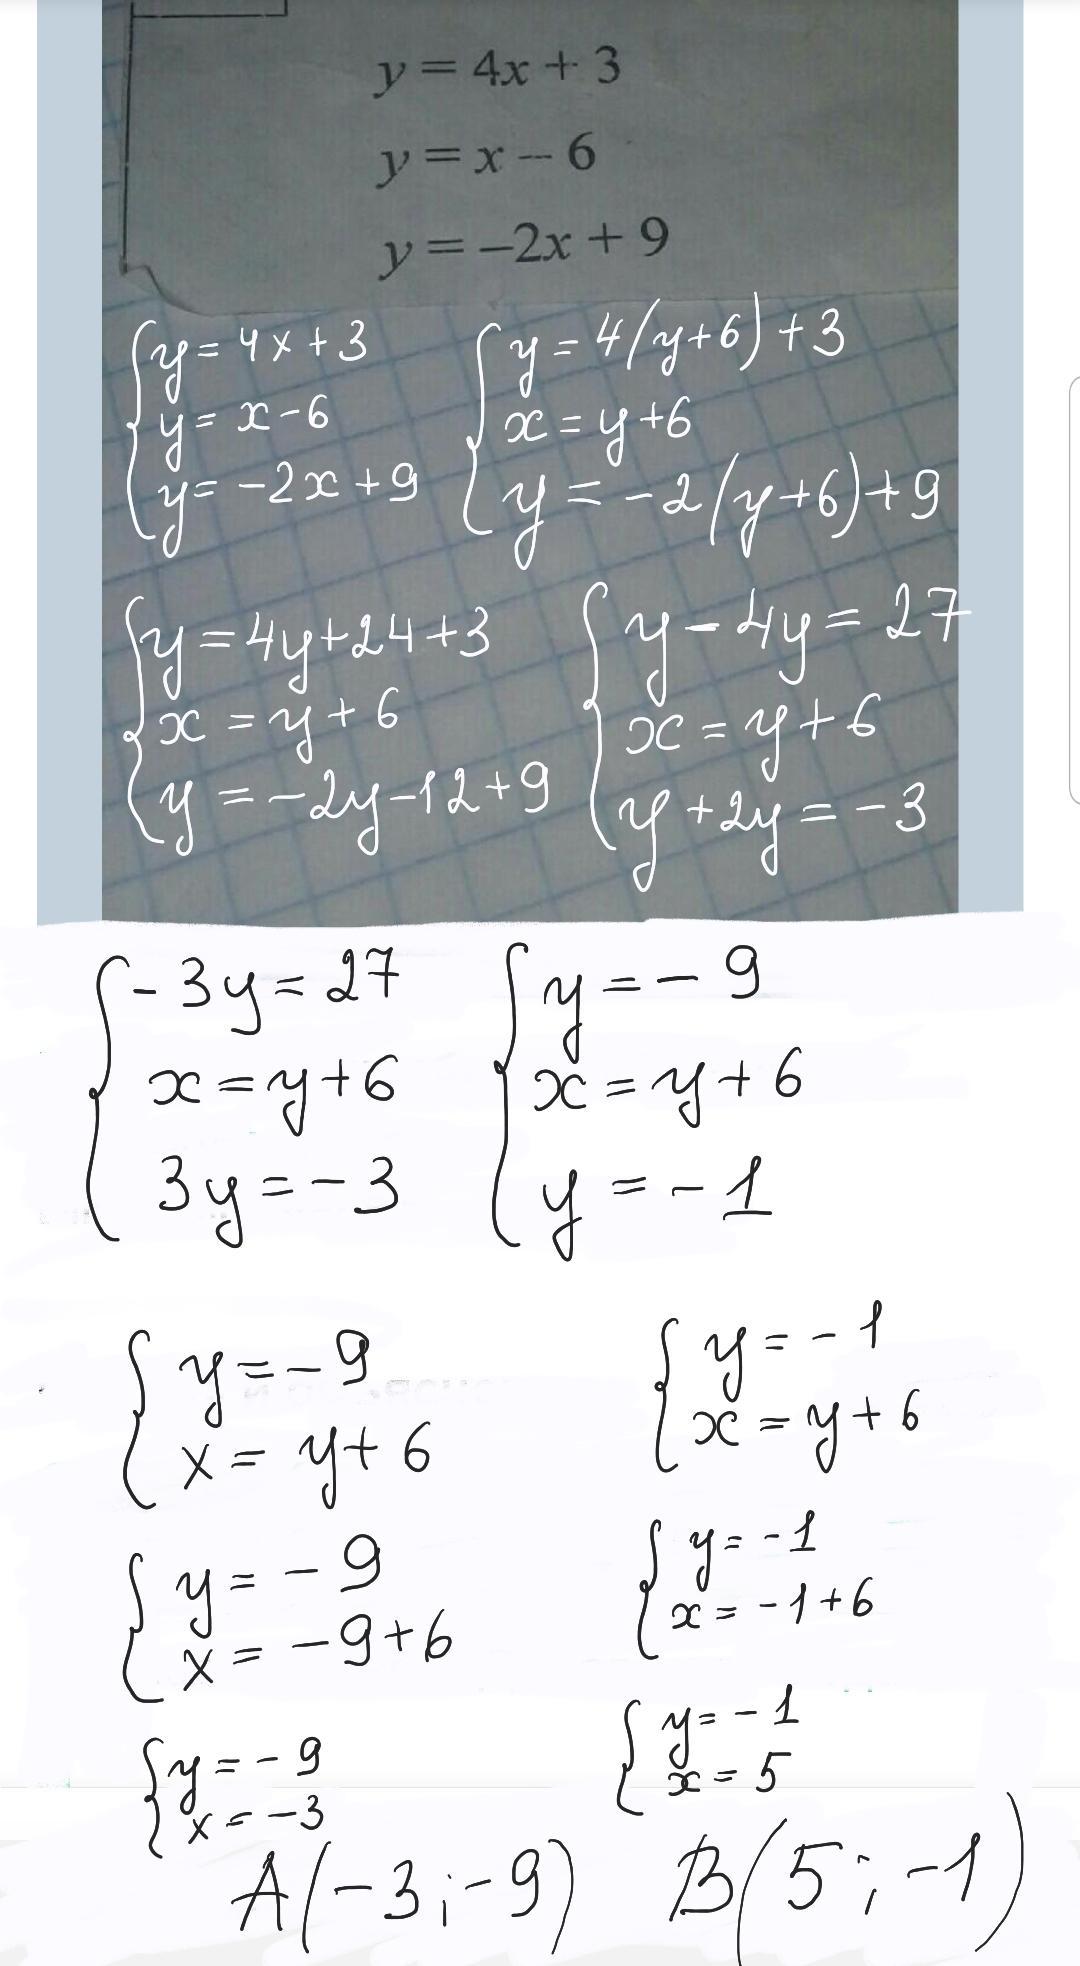 y = 4x + 3
y = x - 6
y = -2x + 9
{y = 4x + 3
y = x - 6
y = -2x + 9
{y = 4(y+6) + 3
x = y + 6
y = -2(y+6) + 9
{y = 4y + 24 + 3
x = y + 6
y = -2y - 12 + 9
{y - 4y = 27
x = y + 6
y + 2y = -3
{-3y = 27
x = y + 6
3y = -3
{y = -9
x = y + 6
y = -1
{y = -9
x = y + 6
{y = -1
x = y + 6
{y = -9
x = -9 + 6
{y = -1
x = -1 + 6
{y = -9
x = -3
{y = -1
x = 5
A(-3; -9)
B(5; -1)